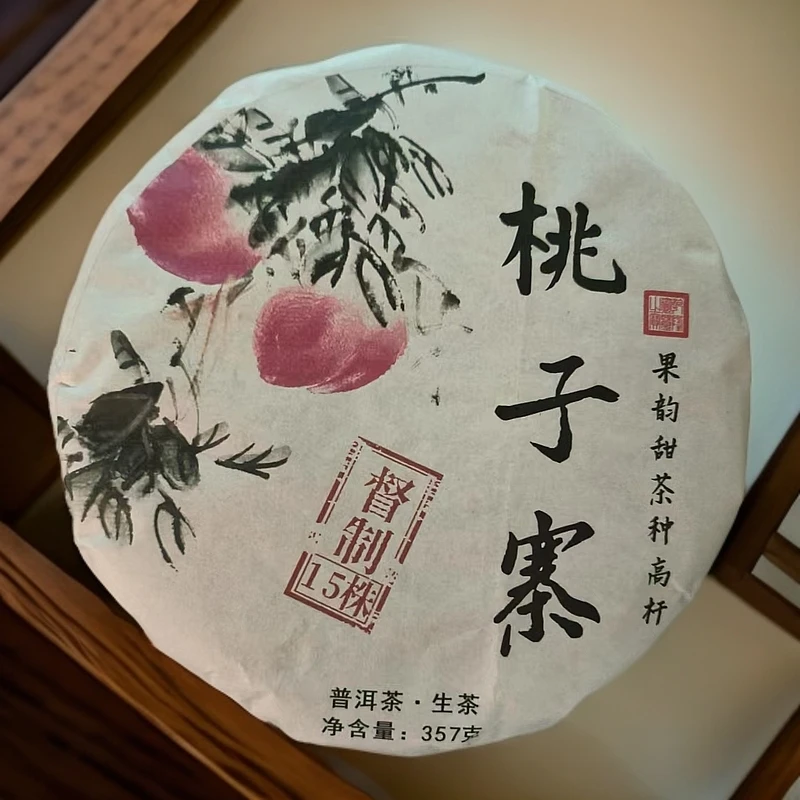 桃子寨
果韵甜茶种高杆
督制
15株
普洱茶·生茶
净含量：357克